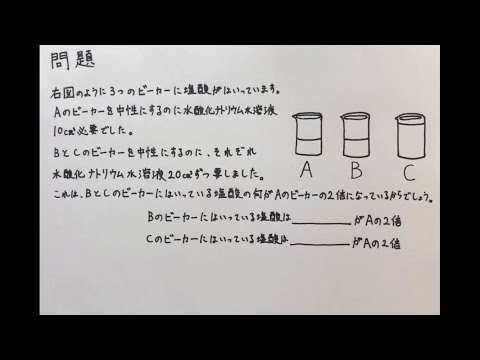 問題
右図のように3つのビーカーに塩酸がはいっています。
Aのビーカーを中性にするのに水酸化ナトリウム水溶液
10cm³必要でした。
BとCのビーカーを中性にするのに、それぞれ
水酸化ナトリウム水溶液20cm³ずつ要しました。
これは、BとCのビーカーにはいっている塩酸の何がAのビーカーの2倍になっているからでしょう。
A B C
Bのビーカーにはいっている塩酸は＿＿＿＿がAの2倍
Cのビーカーにはいっている塩酸は＿＿＿＿がAの2倍